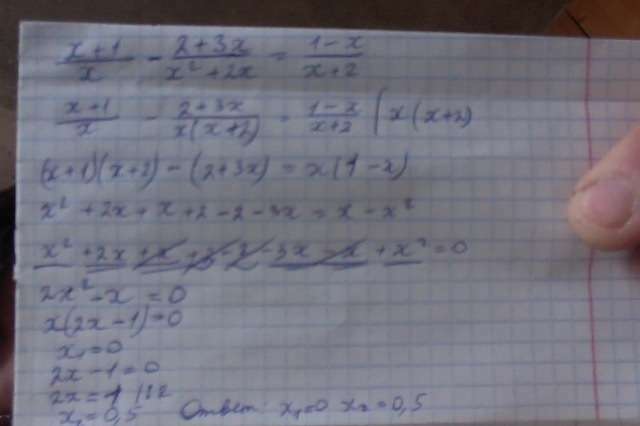 x+1/x - 2+3x/x²+2x = 1-x/x+2
x+1/x - 2+3x/x(x+2) = 1-x/x+2 | x(x+2)
(x+1)(x+2) - (2+3x) = x(1-x)
x² + 2x + x + 2 - 2 - 3x = x - x²
x² + 2x + x + 2 - 2 - 3x - x + x² = 0
2x² - x = 0
x(2x-1) = 0
x₁ = 0
2x - 1 = 0
2x = 1 |:2
x₂ = 0,5 Ответ: x₁=0 x₂=0,5